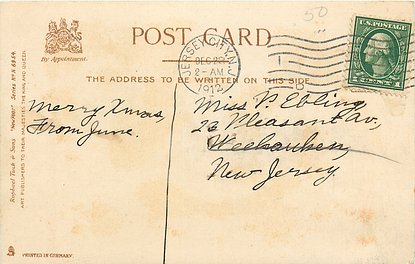 50
POST CARD
By Appointment.
JERSEY CITY, N.J.
DEC 22
2-AM
1912
1
B
U.S. POSTAGE
THE ADDRESS TO BE WRITTEN ON THIS SIDE.
Merry Xmas,
From June.
Miss P. Ebling
23 Pleasant Av,
Weehauken,
New Jersey.
Raphael Tuck & Sons "Series
ART PUBLISHERS TO THEIR MAJESTIES THE KING AND QUEEN.
PRINTED IN GERMANY.